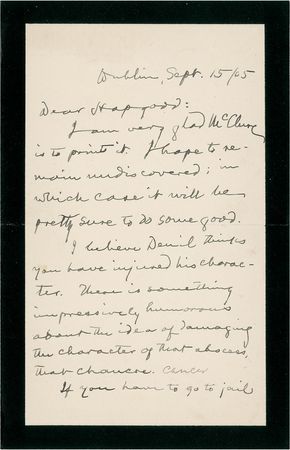 Dublin, Sept. 15/05
Dear Hapgood:
I am very glad McClure
is to print it. I hope to re-
main undiscovered; in
which case it will be
pretty sure to do some good.
I believe Deuil thinks
you have injured his charac-
ter. There is something
impressively humorous
about the idea of damaging
the character of that abscess,
that chancre. cancer
If you have to go to jail